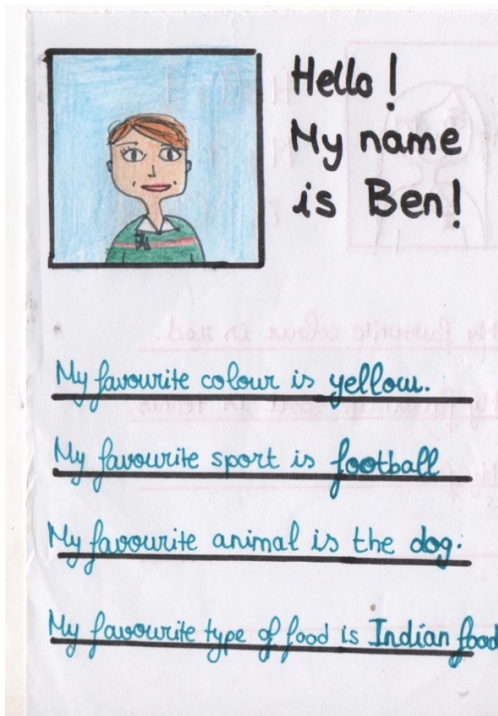 Hello!
My name
is Ben!
My favourite colour is yellow.
My favourite sport is football
My favourite animal is the dog.
My favourite type of food is Indian food